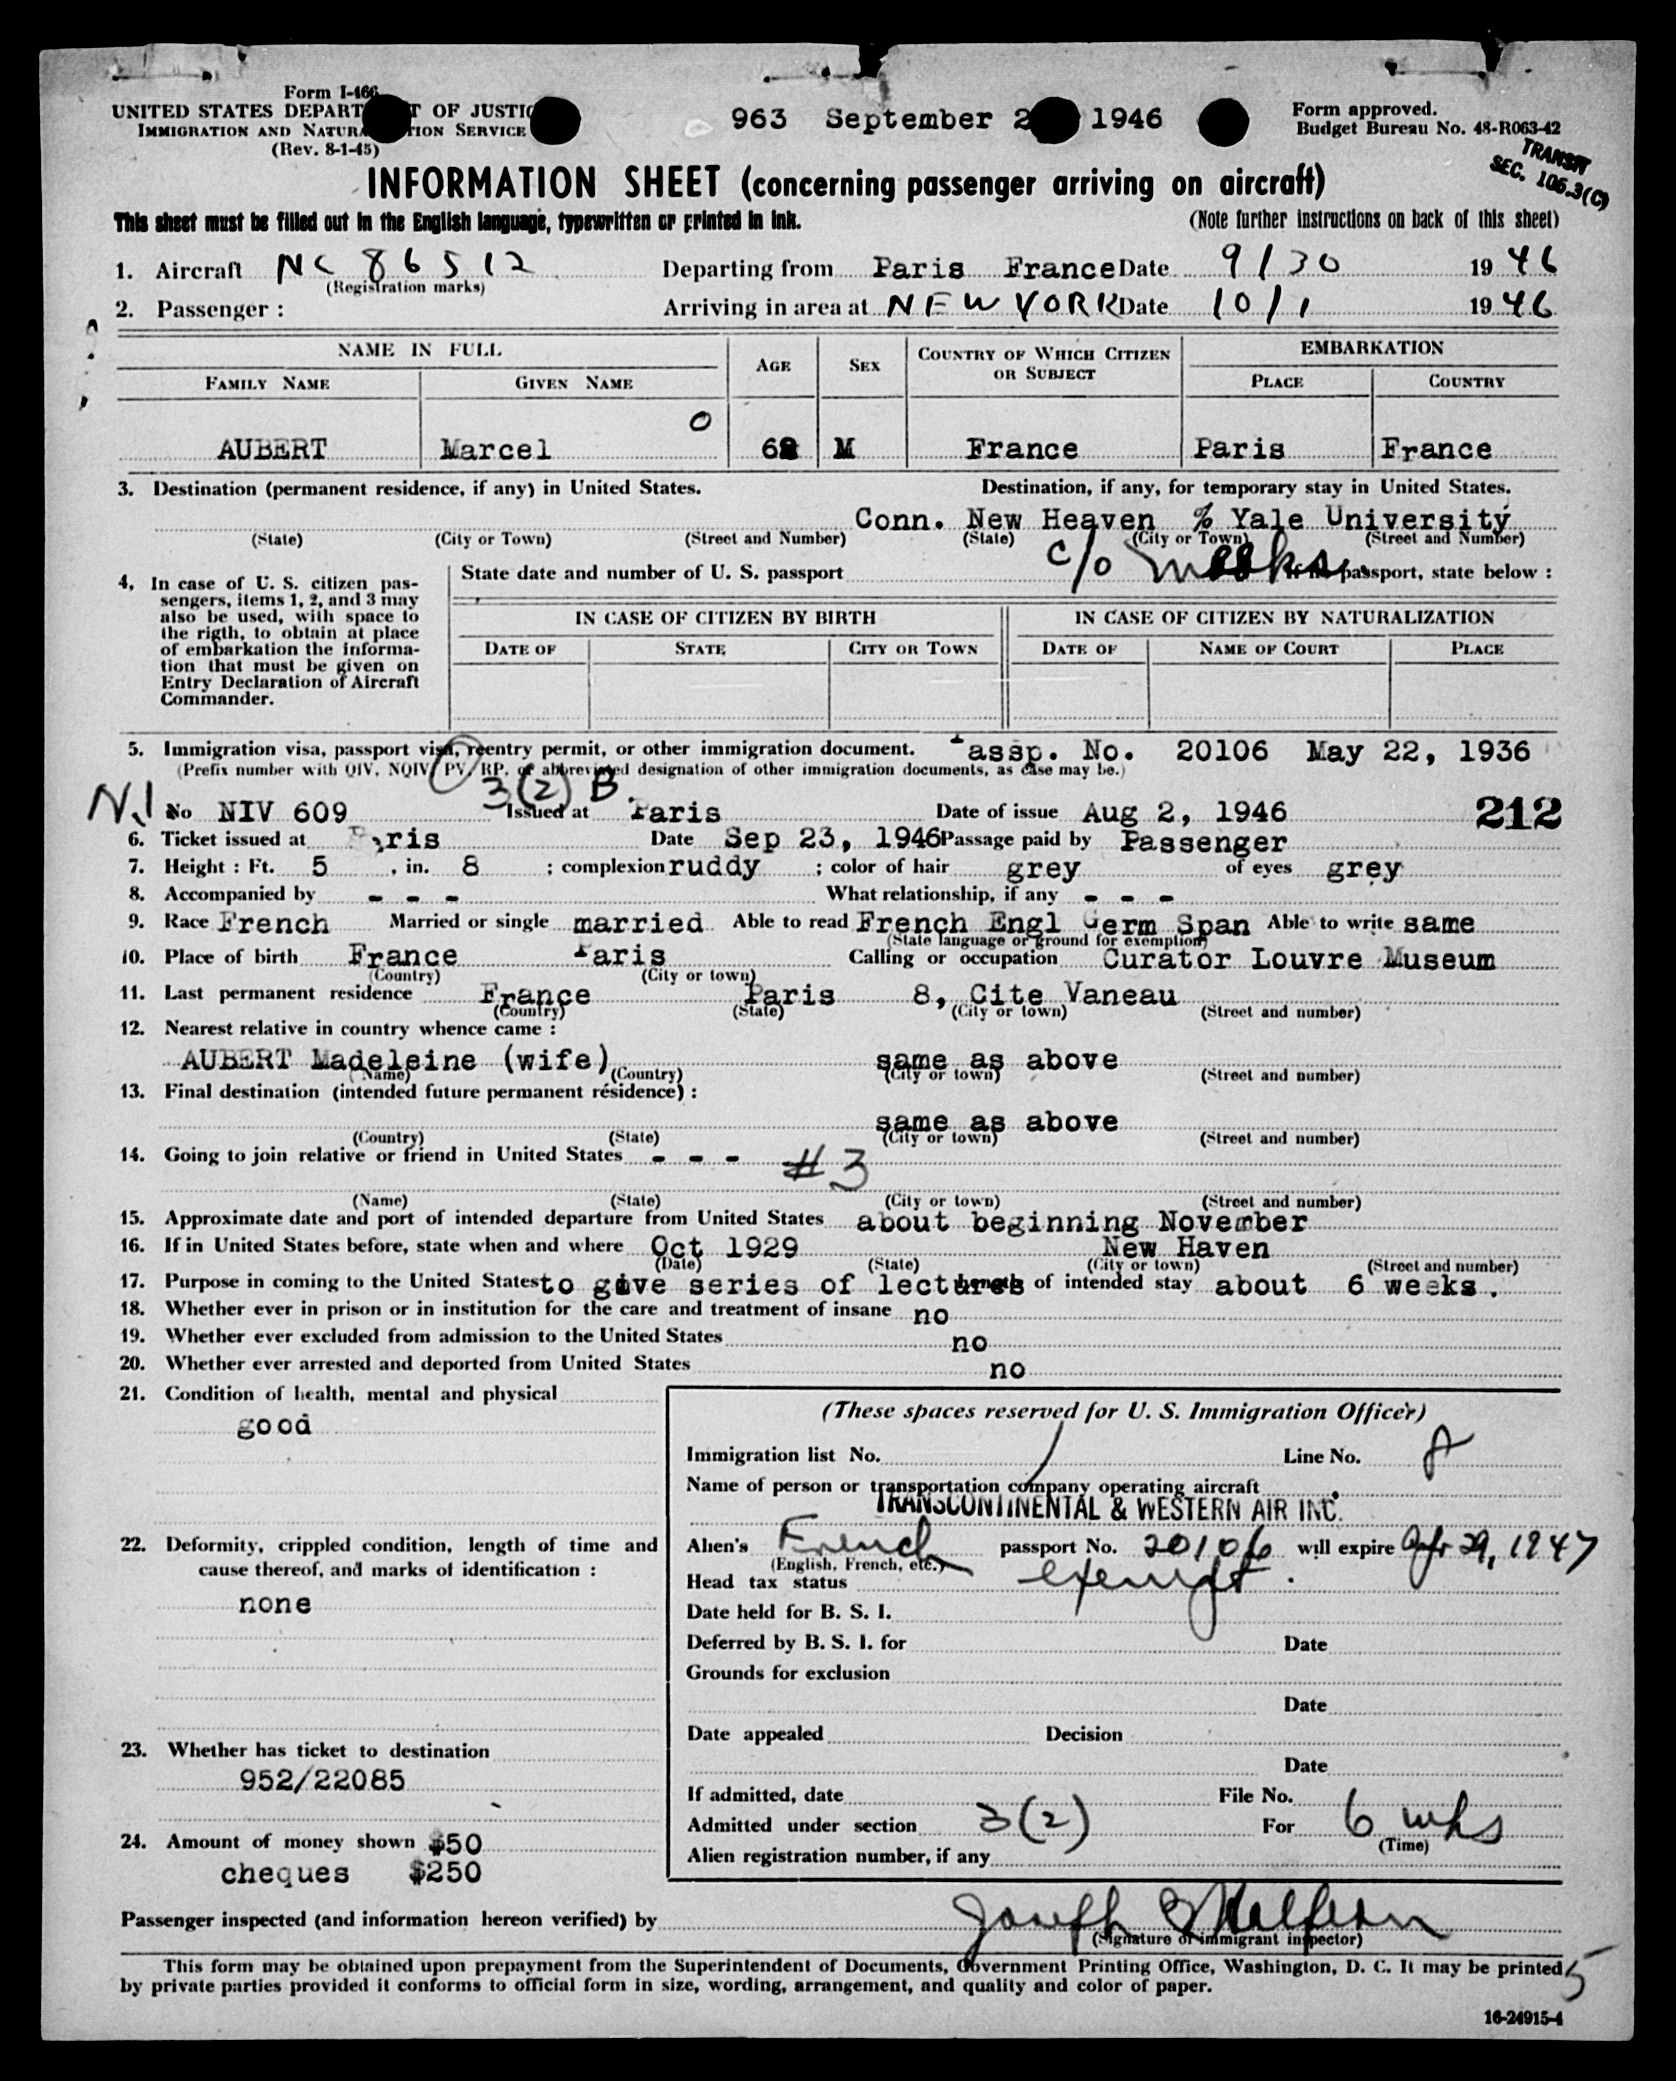 Form I-466
UNITED STATES DEPART T OF JUSTIC
IMMIGRATION AND NATURA TION SERVICE
(Rev. 8-1-45)
963 September 2 1946
Form approved.
Budget Bureau No. 48-R063-42
TRANSIT
SEC. 106.3(C)
INFORMATION SHEET (concerning passenger arriving on aircraft)
This sheet must be filled out in the English language, typewritten or printed in ink. (Note further instructions on back of this sheet)
1. Aircraft NC 86512 Departing from Paris France Date 9/30 19 46
(Registration marks)
2. Passenger : Arriving in area at NEW YORK Date 10/1 19 46
NAME IN FULL AGE SEX COUNTRY OF WHICH CITIZEN OR SUBJECT EMBARKATION
FAMILY NAME GIVEN NAME PLACE COUNTRY
O
AUBERT Marcel 62 M France Paris France
3. Destination (permanent residence, if any) in United States. Destination, if any, for temporary stay in United States.
Conn. New Heaven % Yale University
(State) (City or Town) (Street and Number) (State) (City or Town) (Street and Number)
c/o Meeks
4. In case of U. S. citizen pas-
sengers, items 1, 2, and 3 may
also be used, with space to
the rigth, to obtain at place
of embarkation the informa-
tion that must be given on
Entry Declaration of Aircraft
Commander.
State date and number of U. S. passport If no passport, state below :
IN CASE OF CITIZEN BY BIRTH IN CASE OF CITIZEN BY NATURALIZATION
DATE OF STATE CITY OR TOWN DATE OF NAME OF COURT PLACE
5. Immigration visa, passport visa, reentry permit, or other immigration document. Passp. No. 20106 May 22, 1936
(Prefix number with QIV, NQIV, PV, RP, or abbreviated designation of other immigration documents, as case may be.)
3(2) B.
N.I No NIV 609 Issued at Paris Date of issue Aug 2, 1946 212
6. Ticket issued at Paris Date Sep 23, 1946 Passage paid by Passenger
7. Height : Ft. 5 , in. 8 ; complexion ruddy ; color of hair grey of eyes grey
8. Accompanied by - - - What relationship, if any - - -
9. Race French Married or single married Able to read French Engl Germ Span Able to write same
(State language or ground for exemption)
10. Place of birth France Paris Calling or occupation Curator Louvre Museum
(Country) (City or town)
11. Last permanent residence France Paris 8, Cite Vaneau
(Country) (State) (City or town) (Street and number)
12. Nearest relative in country whence came :
AUBERT Madeleine (wife) same as above
(Name) (Country) (City or town) (Street and number)
13. Final destination (intended future permanent résidence) :
same as above
(Country) (State) (City or town) (Street and number)
14. Going to join relative or friend in United States - - - #3
(Name) (State) (City or town) (Street and number)
15. Approximate date and port of intended departure from United States about beginning November
16. If in United States before, state when and where Oct 1929 New Haven
(Date) (State) (City or town) (Street and number)
17. Purpose in coming to the United States to give series of lectures Length of intended stay about 6 weeks.
18. Whether ever in prison or in institution for the care and treatment of insane no
19. Whether ever excluded from admission to the United States no
20. Whether ever arrested and deported from United States no
21. Condition of health, mental and physical
good
22. Deformity, crippled condition, length of time and
cause thereof, and marks of identification :
none
23. Whether has ticket to destination
952/22085
24. Amount of money shown $50
cheques $250
(These spaces reserved for U. S. Immigration Officer)
Immigration list No. Line No. 8
Name of person or transportation company operating aircraft
TRANSCONTINENTAL & WESTERN AIR INC.
Alien's French passport No. 20106 will expire Apr 29, 1947
(English, French, etc.)
Head tax status exempt.
Date held for B. S. I.
Deferred by B. S. I. for Date
Grounds for exclusion
Date
Date appealed Decision
Date
If admitted, date File No.
Admitted under section 3(2) For 6 wks
(Time)
Alien registration number, if any
Passenger inspected (and information hereon verified) by Joseph
(Signature of immigrant inspector)
This form may be obtained upon prepayment from the Superintendent of Documents, Government Printing Office, Washington, D. C. It may be printed
by private parties provided it conforms to official form in size, wording, arrangement, and quality and color of paper.
5
16-24915-4